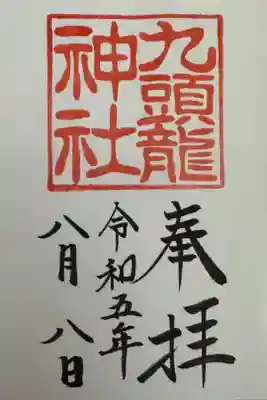 九頭龍
神社
奉拝
令和五年
八月八日